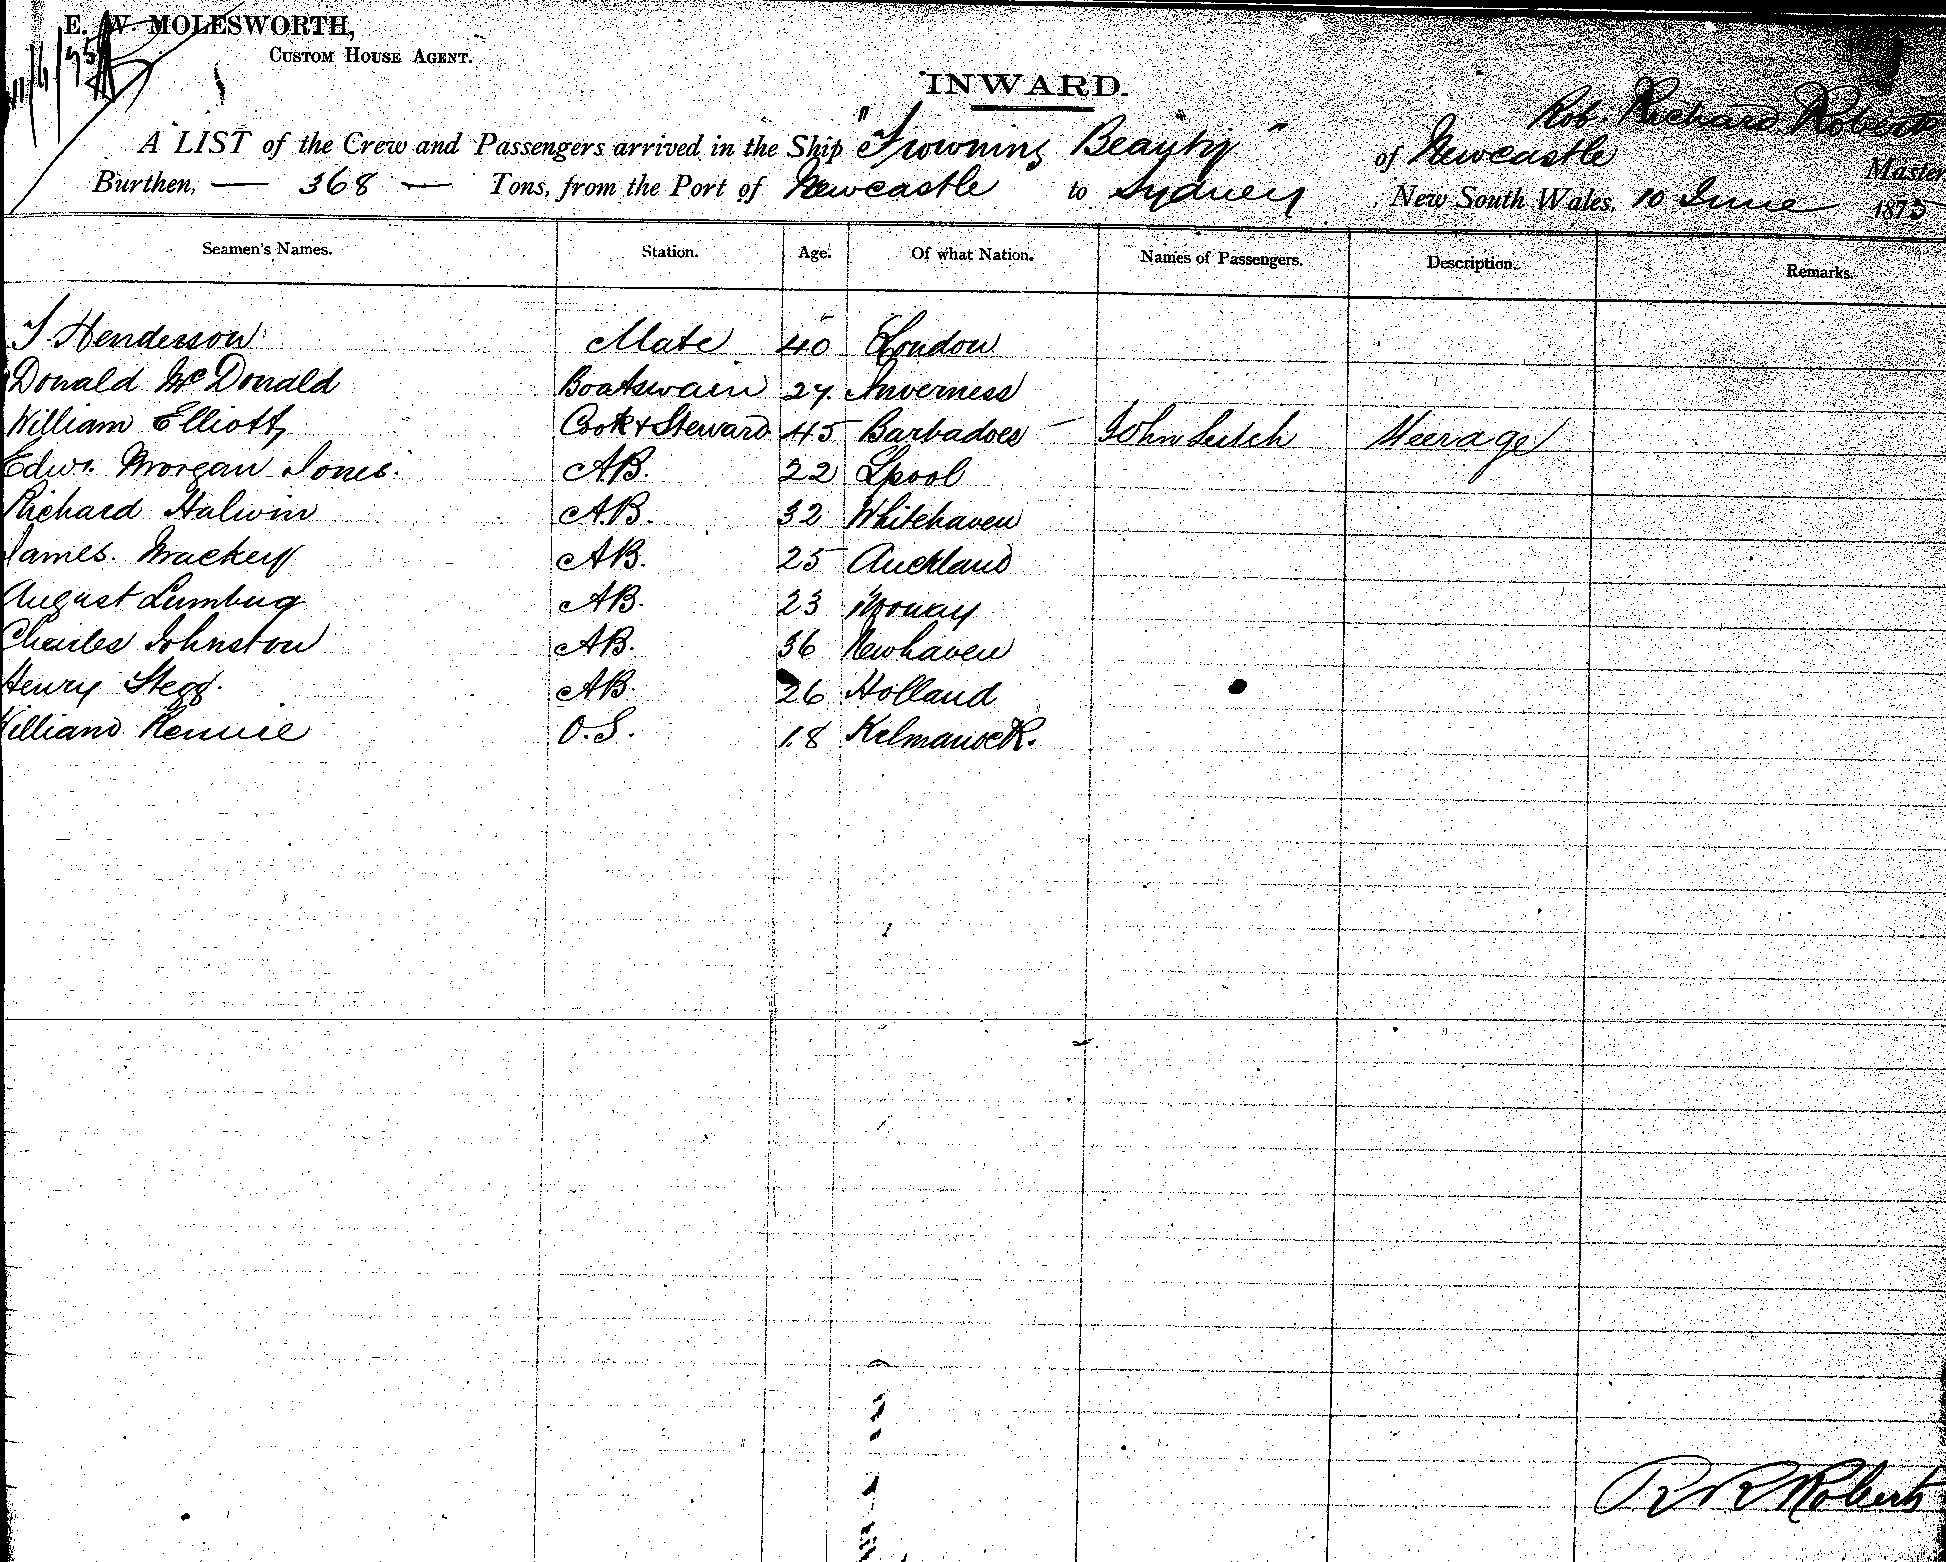 E. W. MOLESWORTH,
CUSTOM HOUSE AGENT.
11/6/75
INWARD.
Rob. Richard Roberts
A LIST of the Crew and Passengers arrived in the Ship "Frowning Beauty" of Newcastle Master,
Burthen, — 368 — Tons, from the Port of Newcastle to Sydney New South Wales, 10 June 1875
Seamen's Names. Station. Age. Of what Nation. Names of Passengers. Description. Remarks.
T Henderson Mate 40 London
Donald McDonald Boatswain 27. Inverness
William Elliott Cook & Steward 45 Barbadoes — John Leitch Steerage
Edwd. Morgan Jones. A.B. 22 Lpool
Richard Halwin A.B. 32 Whitehaven
James. Mackey A.B. 25 Auckland
August A.B. 23
Charles Johnston A.B. 36 Newhaven
Henry Stegg. A.B. 26 Holland
William Rennie O.S. 18 Kilmanock.
R R Roberts